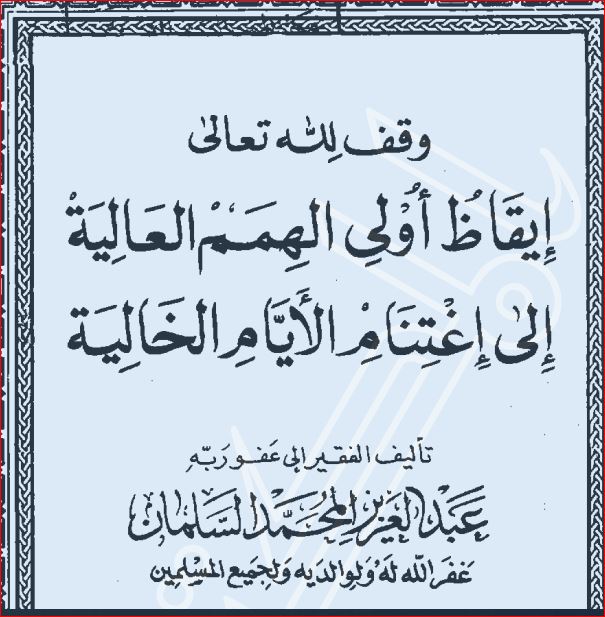 وقف لله تعالى
إِيقَاظُ أُوْلِي الهِمَمِ العَالِيَةْ
إِلىٰ إِغْتِنَامِ الأَيَّامِ الخَالِيَة
تأليف الفقير إلى عَفو رَبّهِ
عَبْد العَزيز المحُمَّد السَّلمان
غفَرَ اللّه لَهُ وَلِوالديه وَلجميع المسْلِمين